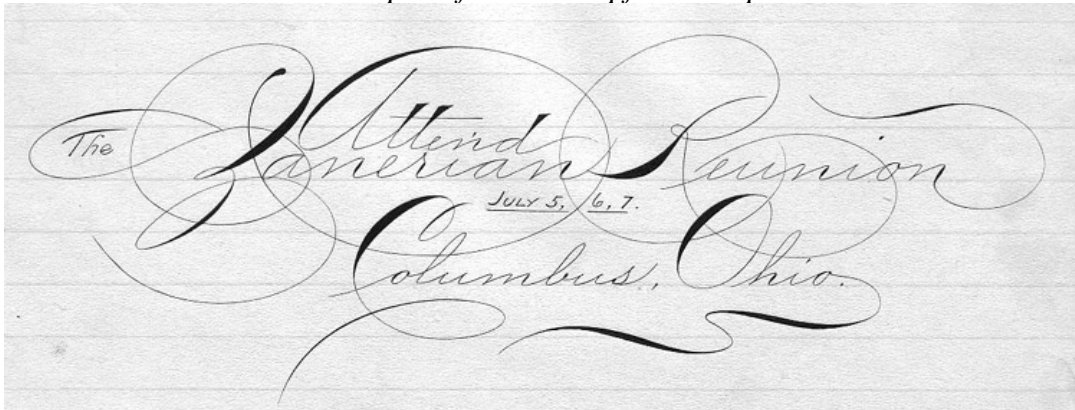 Attend
The Zanerian Reunion
July 5, 6, 7.
Columbus, Ohio.